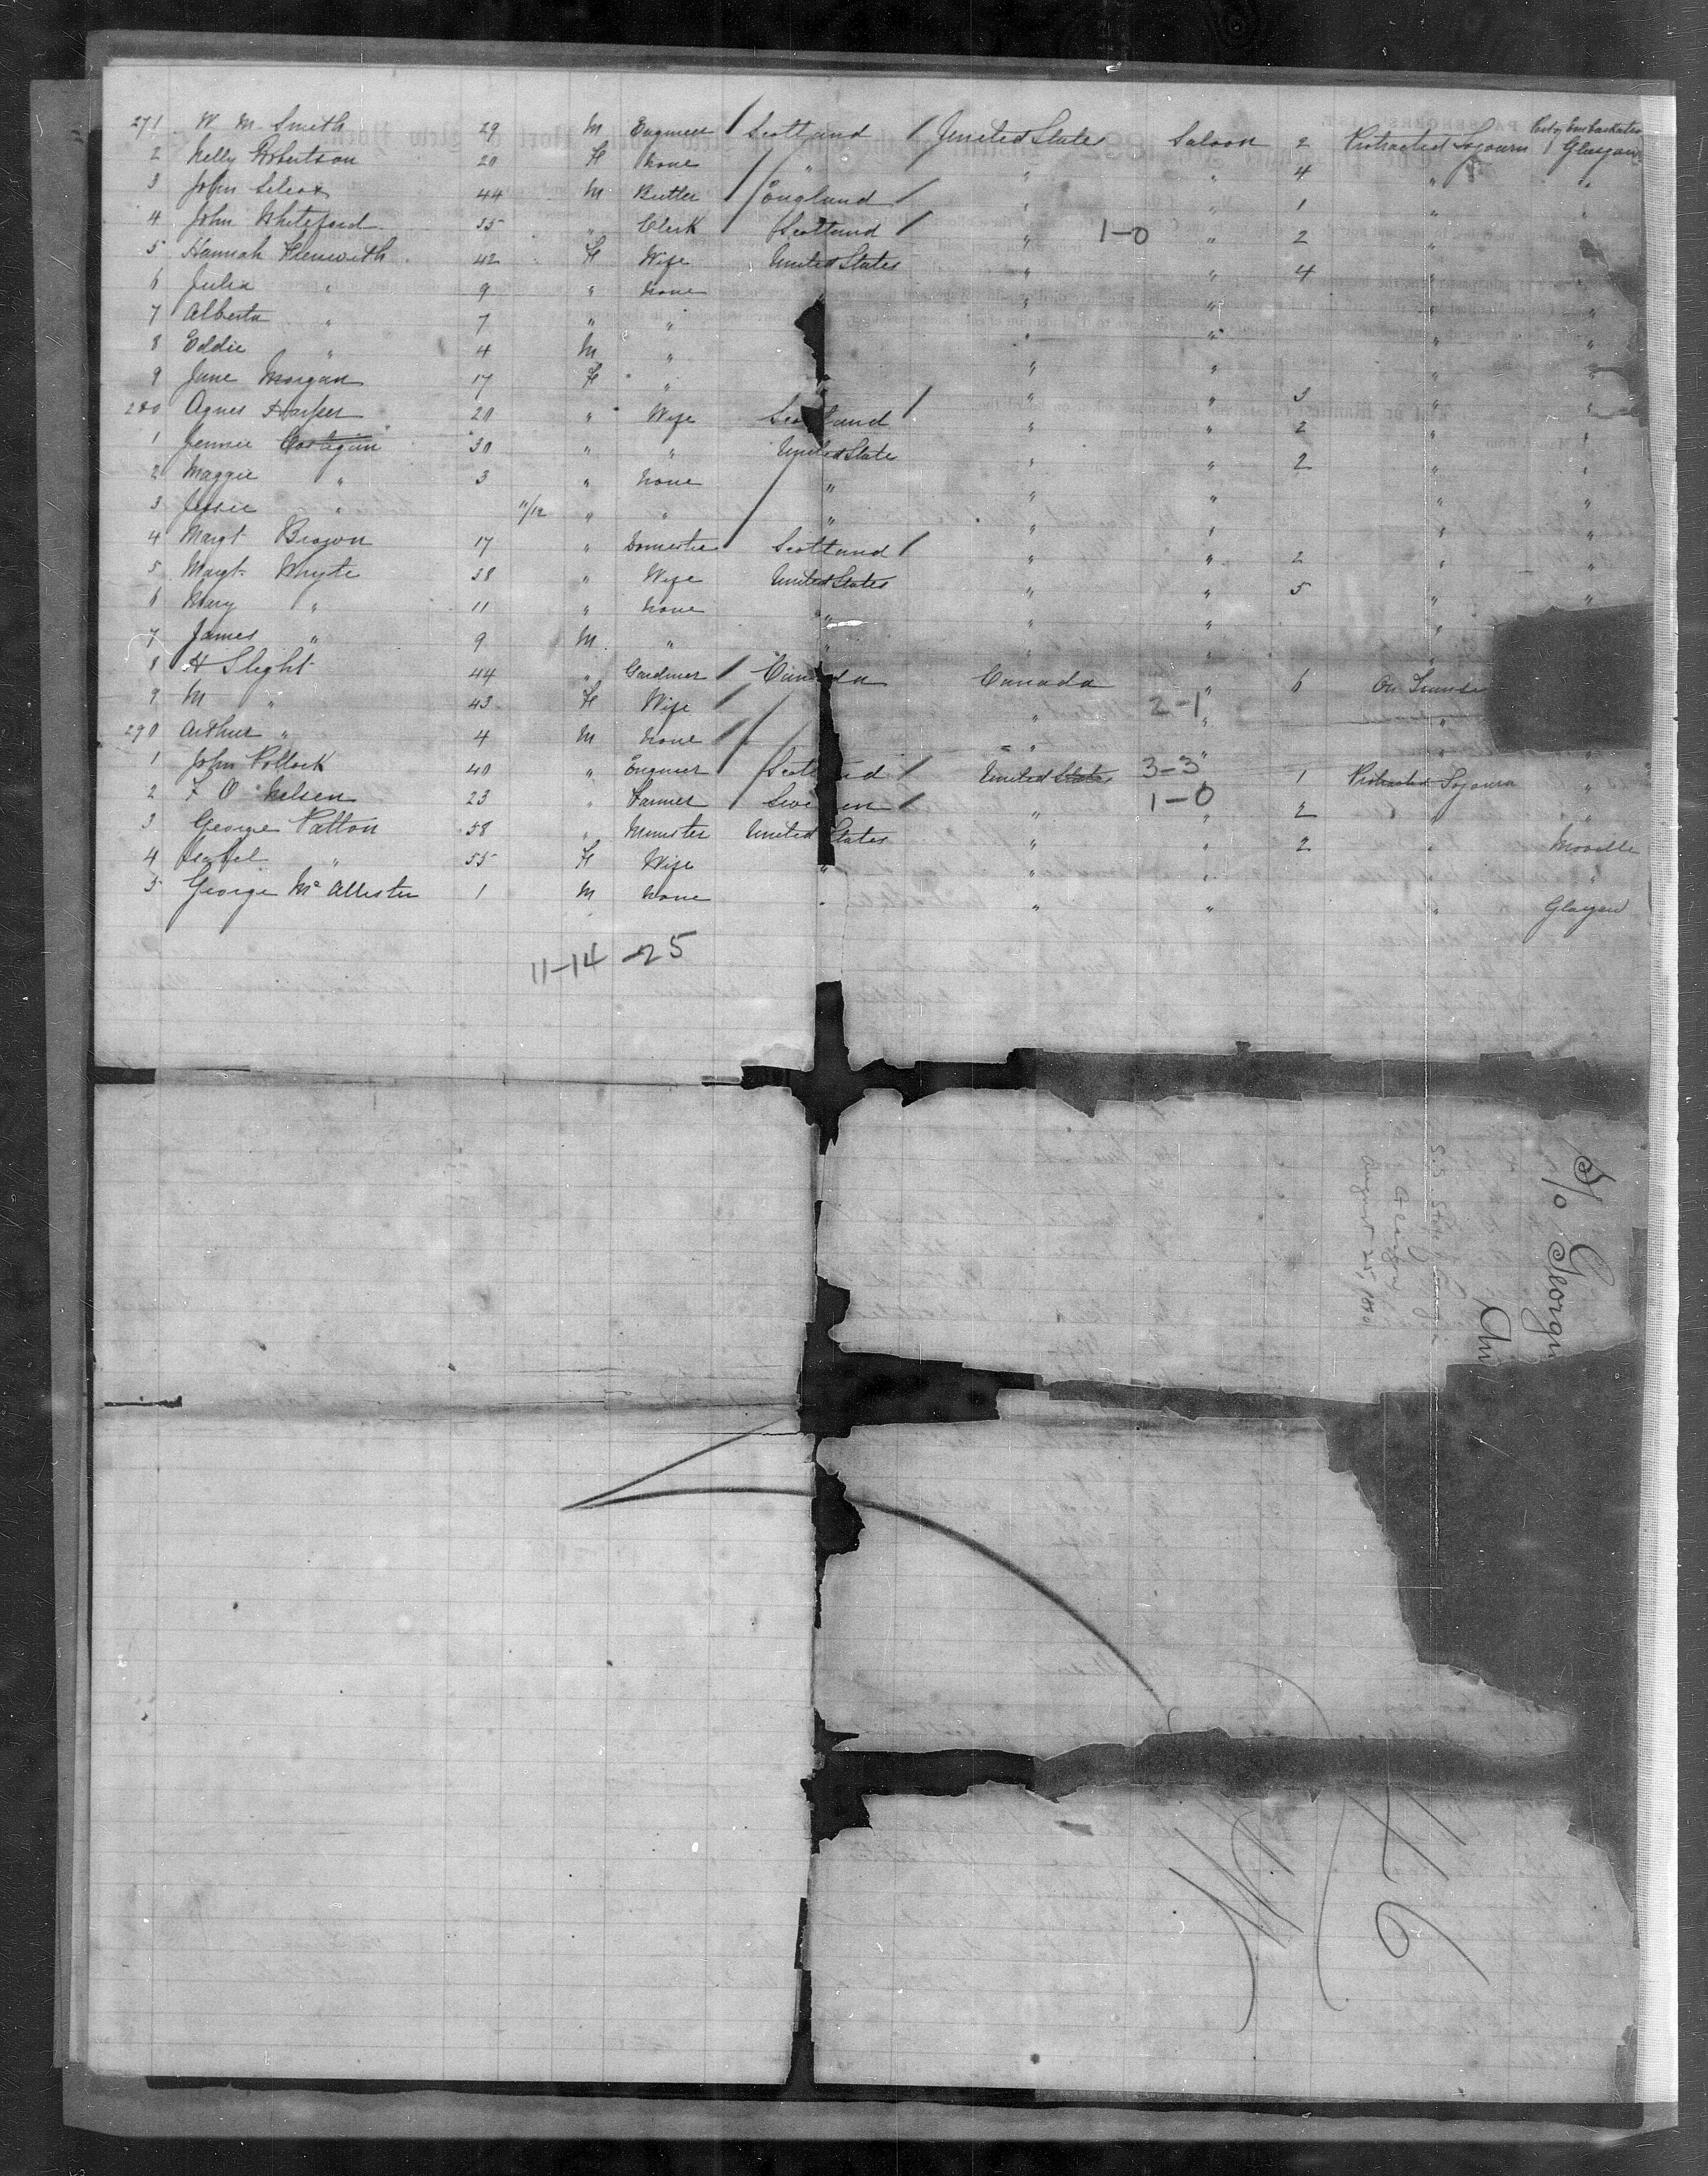 Port of Embarkation
271 W. M. Smith 29 M Engineer Scotland United States Saloon 2 Protracted Sojourn Glasgow
2 Nelly Robertson 20 F None " " " 4 " "
3 John Silcox 44 M Butler England " " 1 " "
4 John Whiteford 35 " Clerk Scotland " 1-0 " 2 " "
5 Hannah 42 F Wife United States " " 4 " "
6 Julia " 9 " None " " " "
7 Alberta " 7 " " " " " "
8 Eddie " 4 M " " " " "
9 Jane Morgan 17 F " " " " 3 " "
280 Agnes Harper 20 " Wife Scotland " " 2 " "
1 Jennie Costigan 30 " " United State " " 2 " "
2 Maggie " 3 " None " " " " "
3 Jessie " 11/12 " " " " " " "
4 Margt Brown 17 " Domestic Scotland " " 2 " "
5 Margt Whyte 38 " Wife United States " " 5 " "
6 Mary " 11 " None " " " " "
7 James " 9 M " " " " "
8 H Slight 44 " Gardiner Canada Canada " 6 On
9 M " 43 F Wife " 2-1 " "
290 Arthur " 4 M None " " " "
1 John Pollock 40 " Engineer Scotland United States 3-3 1 Protracted Sojourn "
2 F O Nelsen 23 " Farmer Sweden " 1-0 " 2 " "
3 George Patton 58 " Minister United States " " 2 " Moville
4 Isabel " 55 F Wife " " " " "
5 George McAllister 1 M None " " " " Glasgow
11-14-25
S/S Georgia
S.S. State of Georgia
Glasgow
August 25, 1891
46